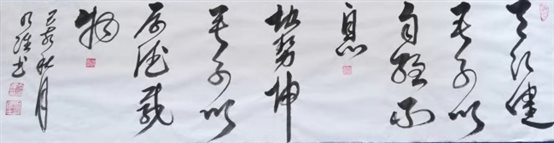 天行健
君子以
自強不
息
地勢坤
君子以
厚德載
物
己亥秋月
書